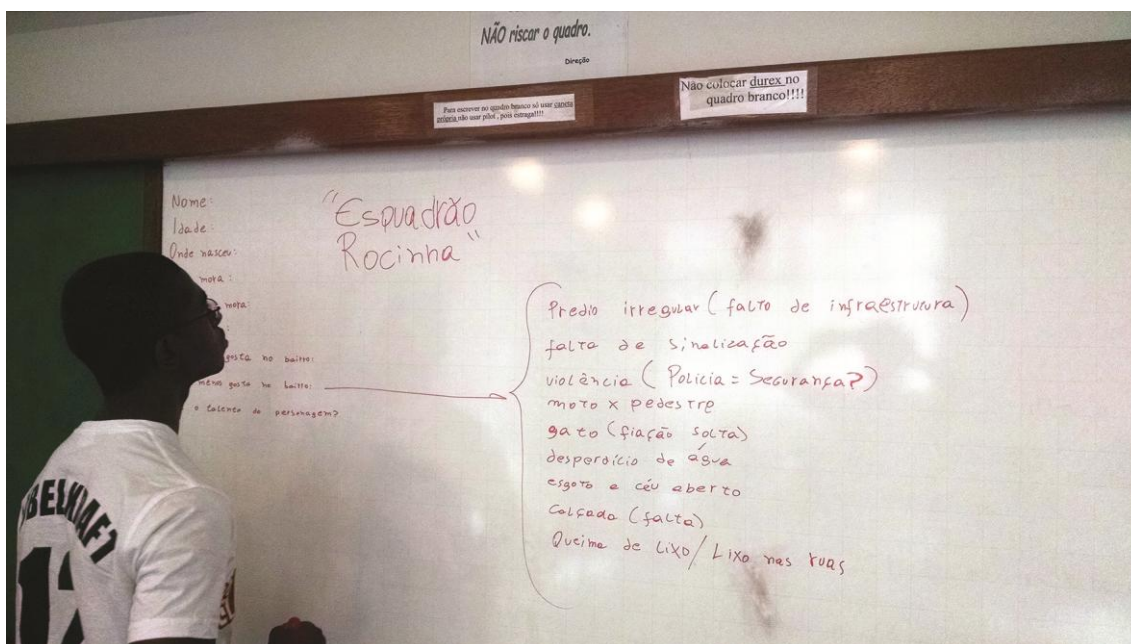 NÃO riscar o quadro.
Direção
Para escrever no quadro branco só usar caneta
própria não usar pilot, pois estraga!!!!
Não colocar durex no
quadro branco!!!!
Nome:
Idade:
Onde nasceu:
mora:
mora:
gosta no bairro:
menos gosta no bairro:
o talento do personagem?
"Esquadrão
Rocinha"
Predio irregular (falto de infraestrutura)
falta de sinalização
violência (Policia = Segurança?)
moto x pedestre
gato (fiação solta)
desperdício de água
esgoto a céu aberto
Calçada (falta)
Queima de Lixo/Lixo nas ruas